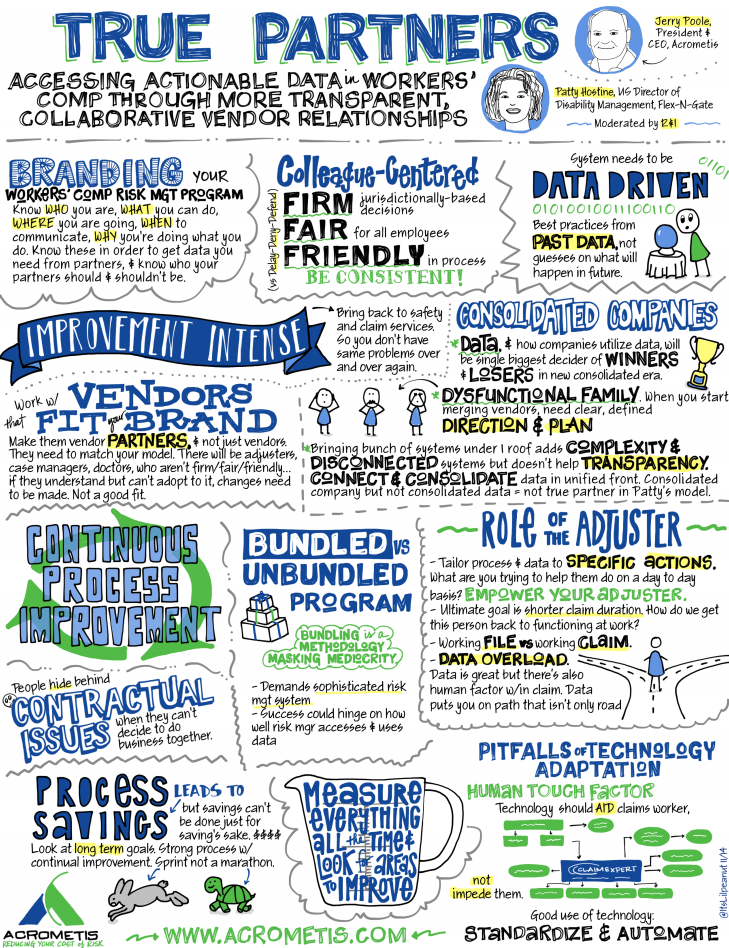 TRUE PARTNERS
ACCESSING ACTIONABLE DATA in WORKERS'
COMP THROUGH MORE TRANSPARENT,
COLLABORATIVE VENDOR RELATIONSHIPS
Jerry Poole,
President &
CEO, Acrometis
Patty Hostine, US Director of
Disability Management, Flex-N-Gate
Moderated by R&I
BRANDING YOUR
WORKERS' COMP RISK MGT PROGRAM
Know WHO you are, WHAT you can do,
WHERE you are going, WHEN to
communicate, WHY you're doing what you
do. Know these in order to get data you
need from partners, & know who your
partners should & shouldn't be.
Colleague-Centered
(vs Delay-Deny-Defend)
FIRM jurisdictionally-based
decisions
FAIR for all employees
FRIENDLY in process
BE CONSISTENT!
System needs to be
01101
DATA DRIVEN
0101001001100110
Best practices from
PAST DATA, not
guesses on what will
happen in future.
IMPROVEMENT INTENSE
Bring back to safety
and claim services.
So you don't have
same problems over
and over again.
CONSOLIDATED COMPANIES
* DATA, & how companies utilize data, will
be single biggest decider of WINNERS
& LOSERS in new consolidated era.
* DYSFUNCTIONAL FAMILY. When you start
merging vendors, need clear, defined
DIRECTION & PLAN
* Bringing bunch of systems under 1 roof adds COMPLEXITY &
DISCONNECTED systems but doesn't help TRANSPARENCY.
CONNECT & CONSOLIDATE data in unified front. Consolidated
company but not consolidated data = not true partner in Patty's model.
Work w/ VENDORS
that FIT your BRAND
Make them vendor PARTNERS, & not just vendors.
They need to match your model. There will be adjusters,
case managers, doctors, who aren't firm/fair/friendly...
if they understand but can't adopt to it, changes need
to be made. Not a good fit.
CONTINUOUS
PROCESS
IMPROVEMENT
BUNDLED VS
UNBUNDLED
PROGRAM
BUNDLING is a
METHODOLOGY
MASKING MEDIOCRITY.
- Demands sophisticated risk
mgt system
- Success could hinge on how
well risk mgr accesses & uses
data
ROLE OF THE ADJUSTER
- Tailor process & data to SPECIFIC ACTIONS.
What are you trying to help them do on a day to day
basis? EMPOWER YOUR ADJUSTER.
- Ultimate goal is shorter claim duration. How do we get
this person back to functioning at work?
- Working FILE vs working CLAIM.
- DATA OVERLOAD.
Data is great but there's also
human factor w/in claim. Data
puts you on path that isn't only road
People hide behind
CONTRACTUAL
ISSUES when they can't
decide to do
business together.
PROCESS
SAVINGS
LEADS TO
but savings can't
be done just for
saving's sake. $$$$
Look at long term goals. Strong process w/
continual improvement. Sprint not a marathon.
MEASURE
EVERYTHING
ALL the TIME &
LOOK for AREAS
TO IMPROVE
PITFALLS OF TECHNOLOGY
ADAPTATION
HUMAN TOUCH FACTOR
Technology should AID claims worker,
CLAIMEXPERT
not
impede them.
Good use of technology:
STANDARDIZE & AUTOMATE
ACROMETIS
REDUCING YOUR COST of RISK
WWW.ACROMETIS.COM
@ItsLilpeanut 11/14